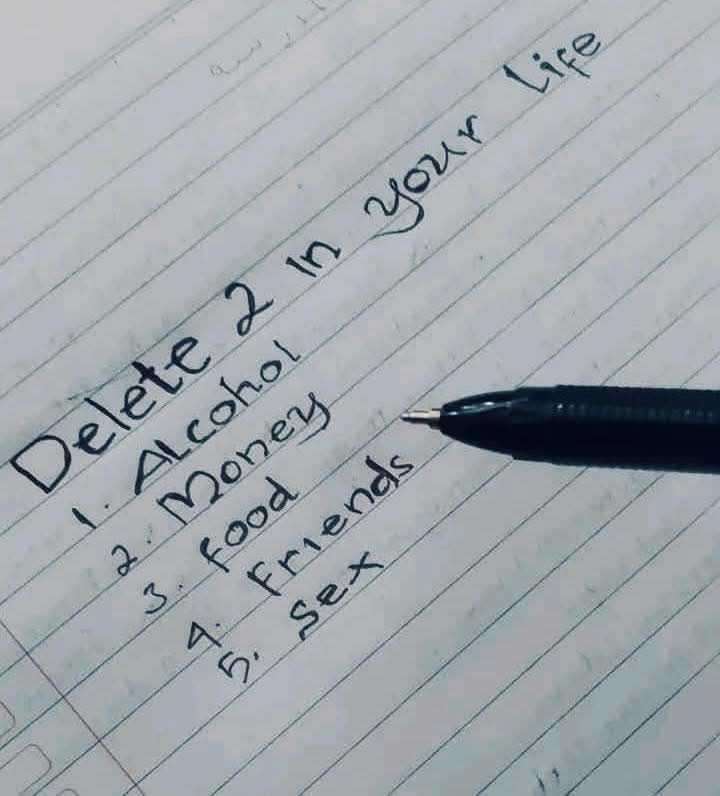 Delete 2 In your Life
1. Alcohol
2. Money
3. food
4. Friends
5. Sex